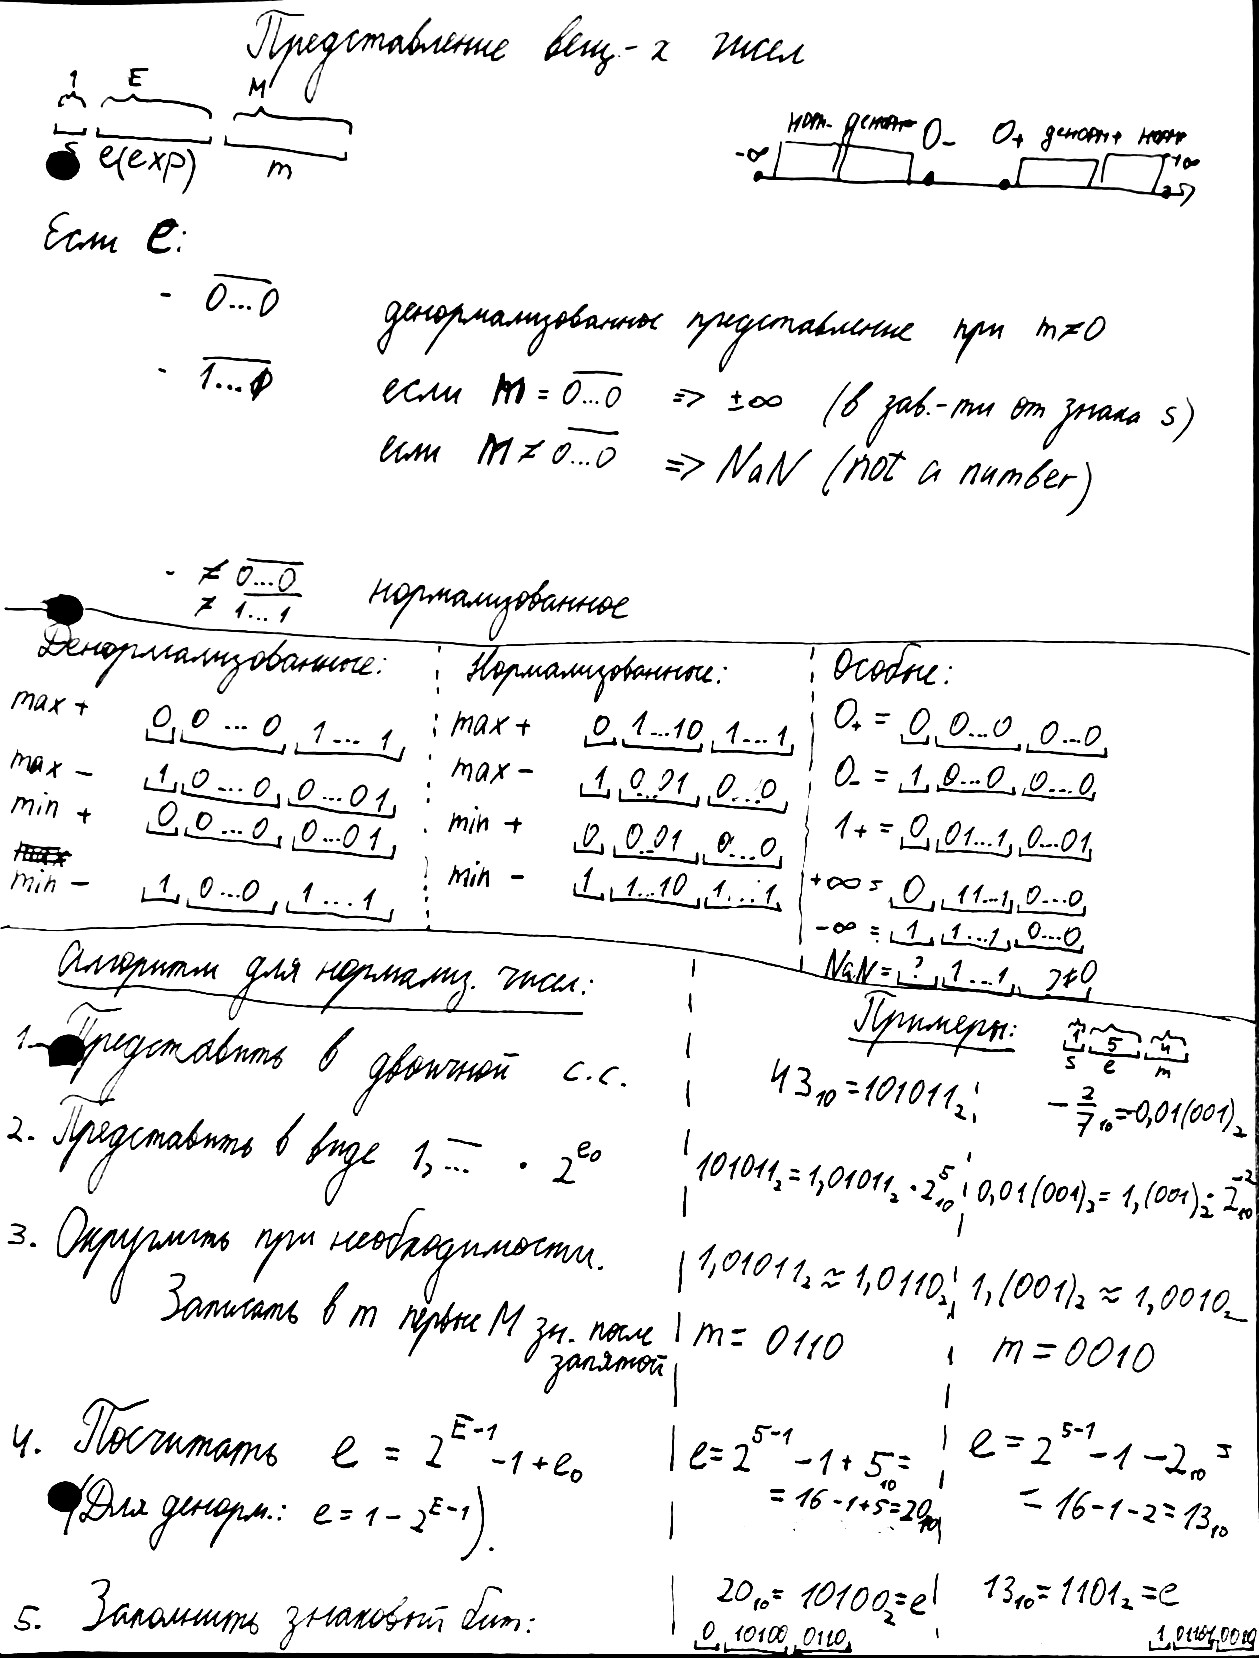 Представление вещ.-х чисел
1 E M
s e(exp) m
-∞ норм- денорм- 0₋ 0₊ денорм+ норм +∞
Если e:
- 0...0 денормализованное представление при m≠0
- 1...1 если M = 0...0 => ±∞ (в зав.-ти от знака s)
если M ≠ 0...0 => NaN (not a number)
- ≠ 0...0
≠ 1...1 нормализованное
Денормализованные:
max + 0 0...0 1...1
max - 1 0...0 0...01
min + 0 0...0 0...01
min - 1 0...0 1...1
Нормализованные:
max + 0 1...10 1...1
max - 1 0..01 0...0
min + 0 0..01 0...0
min - 1 1...10 1...1
Особые:
0₊ = 0 0...0 0...0
0₋ = 1 0...0 0...0
1₊ = 0 01...1 0...01
+∞ = 0 11...1 0...0
-∞ = 1 1...1 0...0
NaN = ? 1...1 ≠0
Алгоритм для нормализ. чисел:
1. Представить в двоичной с.с.
2. Представить в виде 1,... · 2^e₀
3. Округлить при необходимости.
Записать в m первые M зн. после
запятой
4. Посчитать e = 2^(E-1) -1 + e₀
(Для денорм.: e = 1 - 2^(E-1)).
5. Запомнить знаковый бит:
Примеры: 1 5 4
s e m
43₁₀ = 101011₂
101011₂ = 1,01011₂ · 2₁₀⁵
1,01011₂ ≈ 1,0110₂
m = 0110
e = 2^(5-1) - 1 + 5₁₀ =
= 16 - 1 + 5 = 20₁₀
20₁₀ = 10100₂ = e
0 10100 0110
- 2/7₁₀ = -0,01(001)₂
0,01(001)₂ = 1,(001)₂ · 2₁₀⁻²
1,(001)₂ ≈ 1,0010₂
m = 0010
e = 2^(5-1) - 1 - 2₁₀ =
= 16 - 1 - 2 = 13₁₀
13₁₀ = 1101₂ = e
1 01101 0010